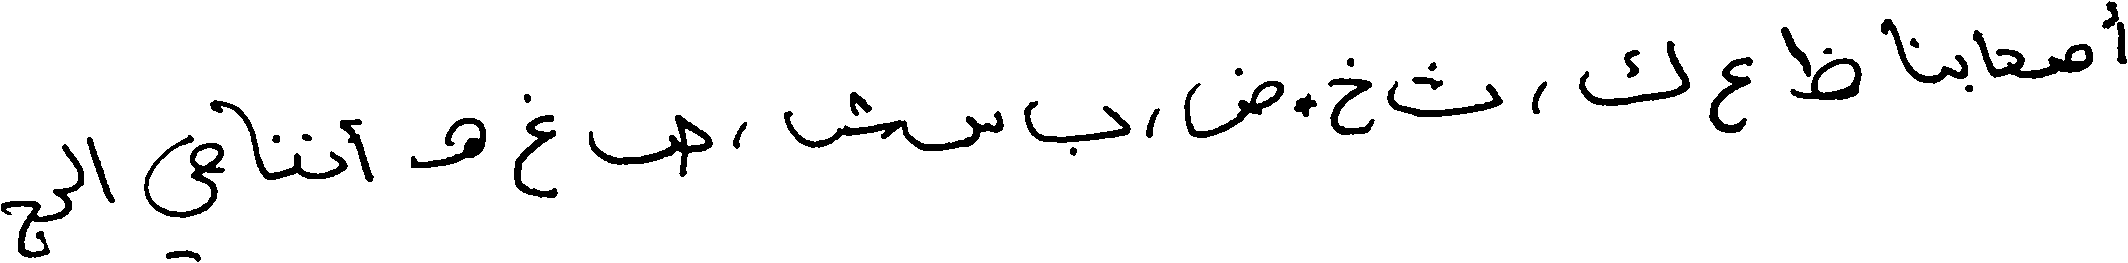 أصحابنا ظ ع ك ، ث خ . ض ، ب س ش ، ص غ هـ أننا في الحج